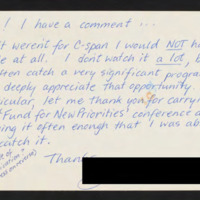 ! I have a comment...
it weren't for C-span I would NOT ha
le at all. I don't watch it a lot, b
ten catch a very significant progra
deeply appreciate that opportunity.
icular, let me thank you for carryin
Fund for New Priorities' conference a
ing it often enough that I was ab
catch it.
Thank